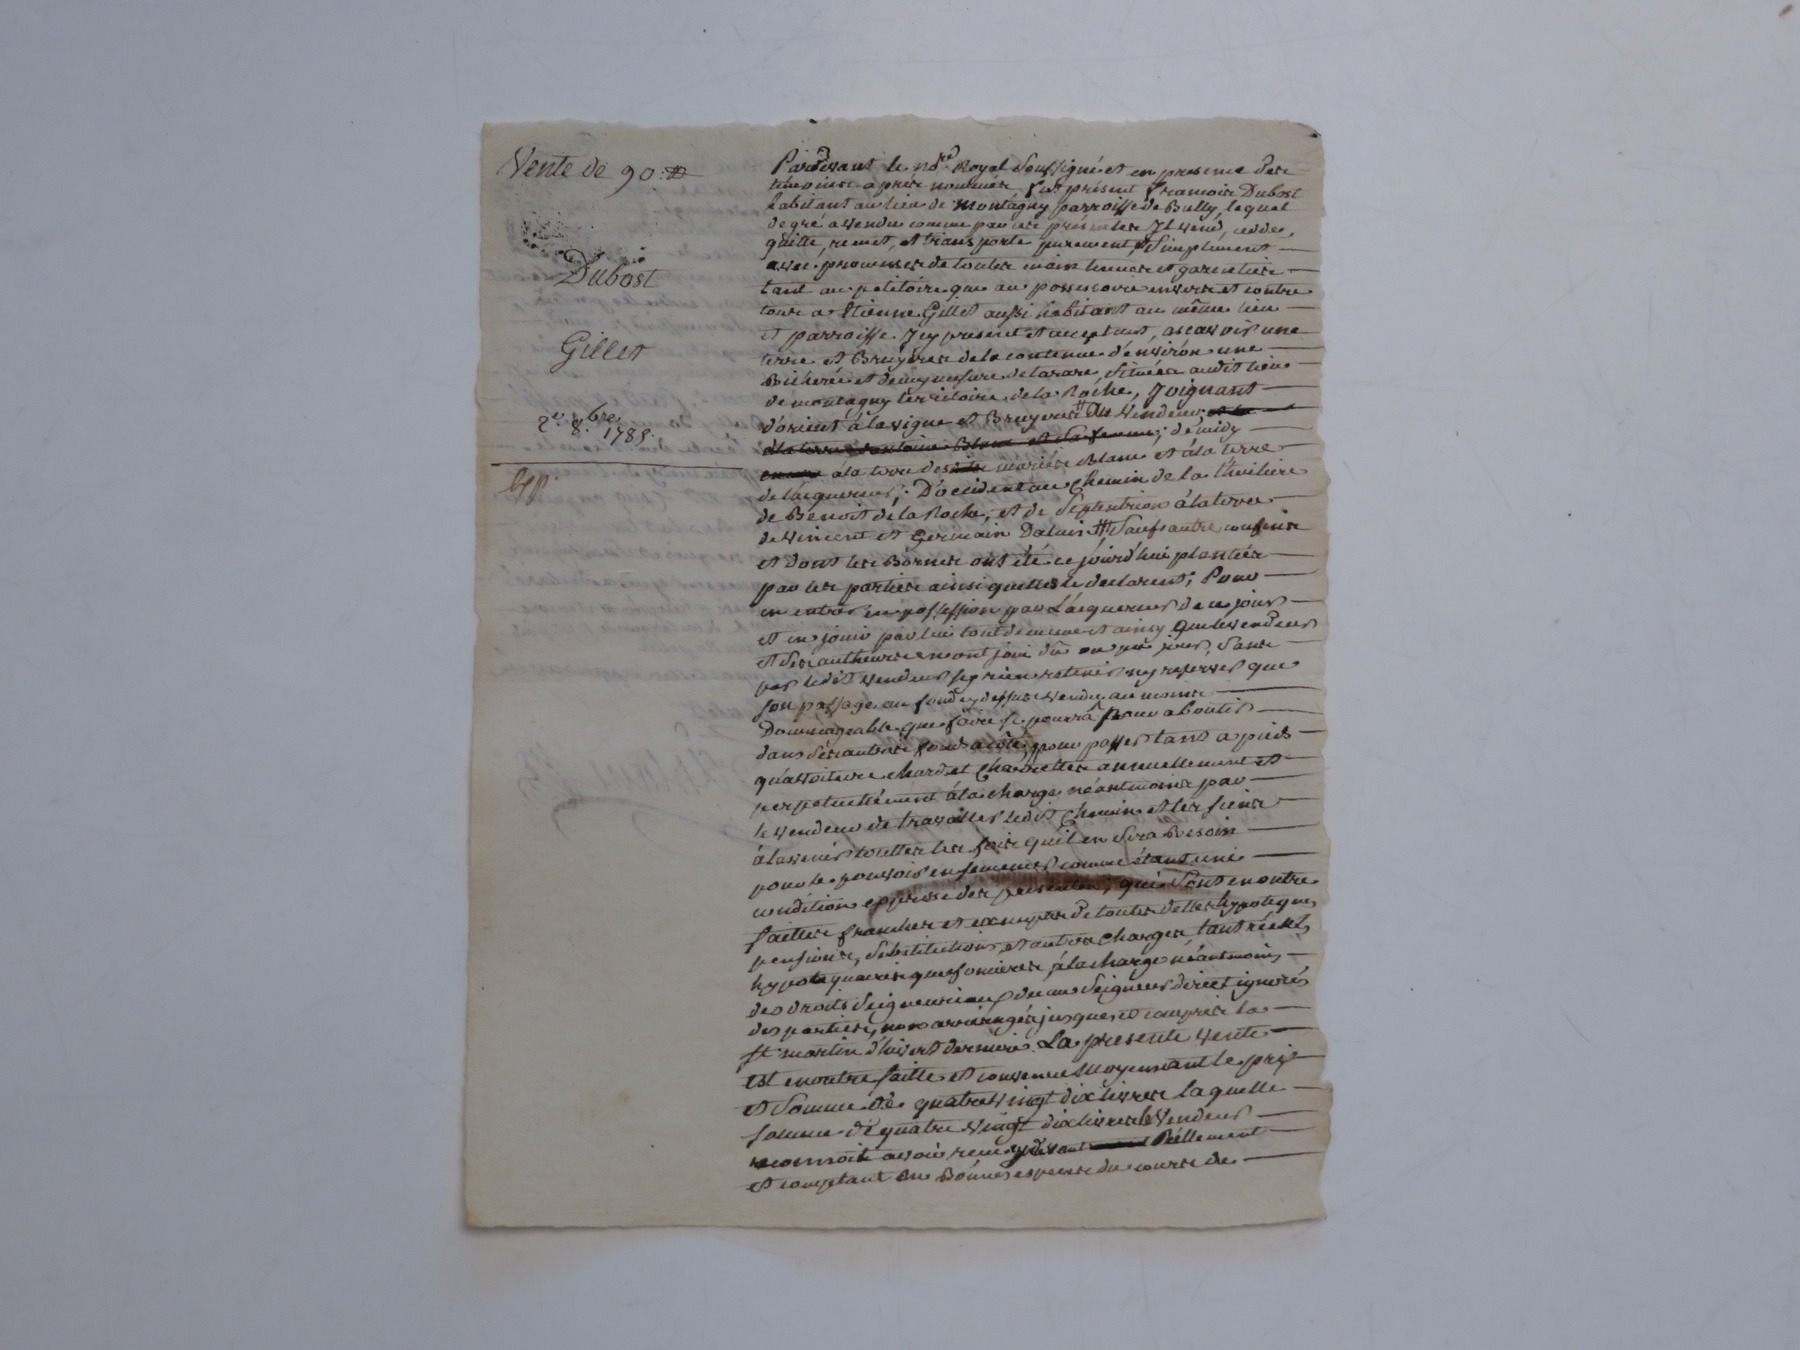 Vente de 90.₶
Dubost
Gillet
2e. 8.bre 1785.
Exp.
Pardevant le no.re Royal soussigné et en presence des
témoins apres nommés fut présent francois Dubost
habitant au lieu de Montagny parroisse de Bully, lequel
de gré a vendu comme par ces présentes Il vend, cedde,
quitte, remet, et transporte purement, et simplement
avec promesse de toutes maintenues et garenties
tant au petitoire que au possessoire envers et contre
tous a Etienne Gillet aussi habitant au même lieu
et parroisse Icy present et acceptant, ascavoir une
terre et Bruyeres de la contenue d'environ une
Bicherée et demy mesure de larare, située audit lieu
de montagny territoire de la Roche, Joignant
d'orient à la vigne et Bruyeres # Du Vendeur, et la
à la terre d'antoine Blanc et sa femme; de midy
encore à la terre des mariés Blanc et à la terre
de lacquereur; D'occident au chemin de la Thuiliere
de Benoit de la Roche; et de septentrion à la terre
de Vincent et Germain Daluis # sauf autre confins
et dont les Bornes ont été ce jourd'hui plantées
par les parties ainsi quelles le declarent; Pour
en entrer en possession par L'acquereur de ce jour
et en jouir par lui tout de meme et ainsy que le vendeur
et ses autheurs en ont joui dû ou pû jouir, sans
par ledit vendeur sy rien retenir ny reserver que
son passage au fond cy dessus vendu au moins
Dommageable que faire se pourrâ pour aboutir
dans ses autres fonds à côté, pour passer tant a pieds
qu'à voiture chard et charrettes annuellement et
perpetuellement à la charge néantmoins par
le vendeur de travailler ledit chemin et les siens
à l'avenir touttes les fois quil en sera Besoin
pour le pouvoir ensemencer comme étant une
condition expresse des presentes, qui sont en outre
faittes franches et exemptes de toutes dettes hypoteques,
pensions, substitutions, et autres charges tant réelles,
hypotequaires que foncieres, à la charge néantmoins
des droits seigneuriaux deu au seigneur direct ignorés
des parties, non arreragés jusques et compris la
st. martin d'hivert derniere. La presente vente
est en outre faitte et convenue moyennant le prix
et somme de quatre vingt dix livres laquelle
somme de quatre vingt dix livres le Vendeur
reconnoit avoir recu Réellement
et comptant en Bonnes especes du cours de